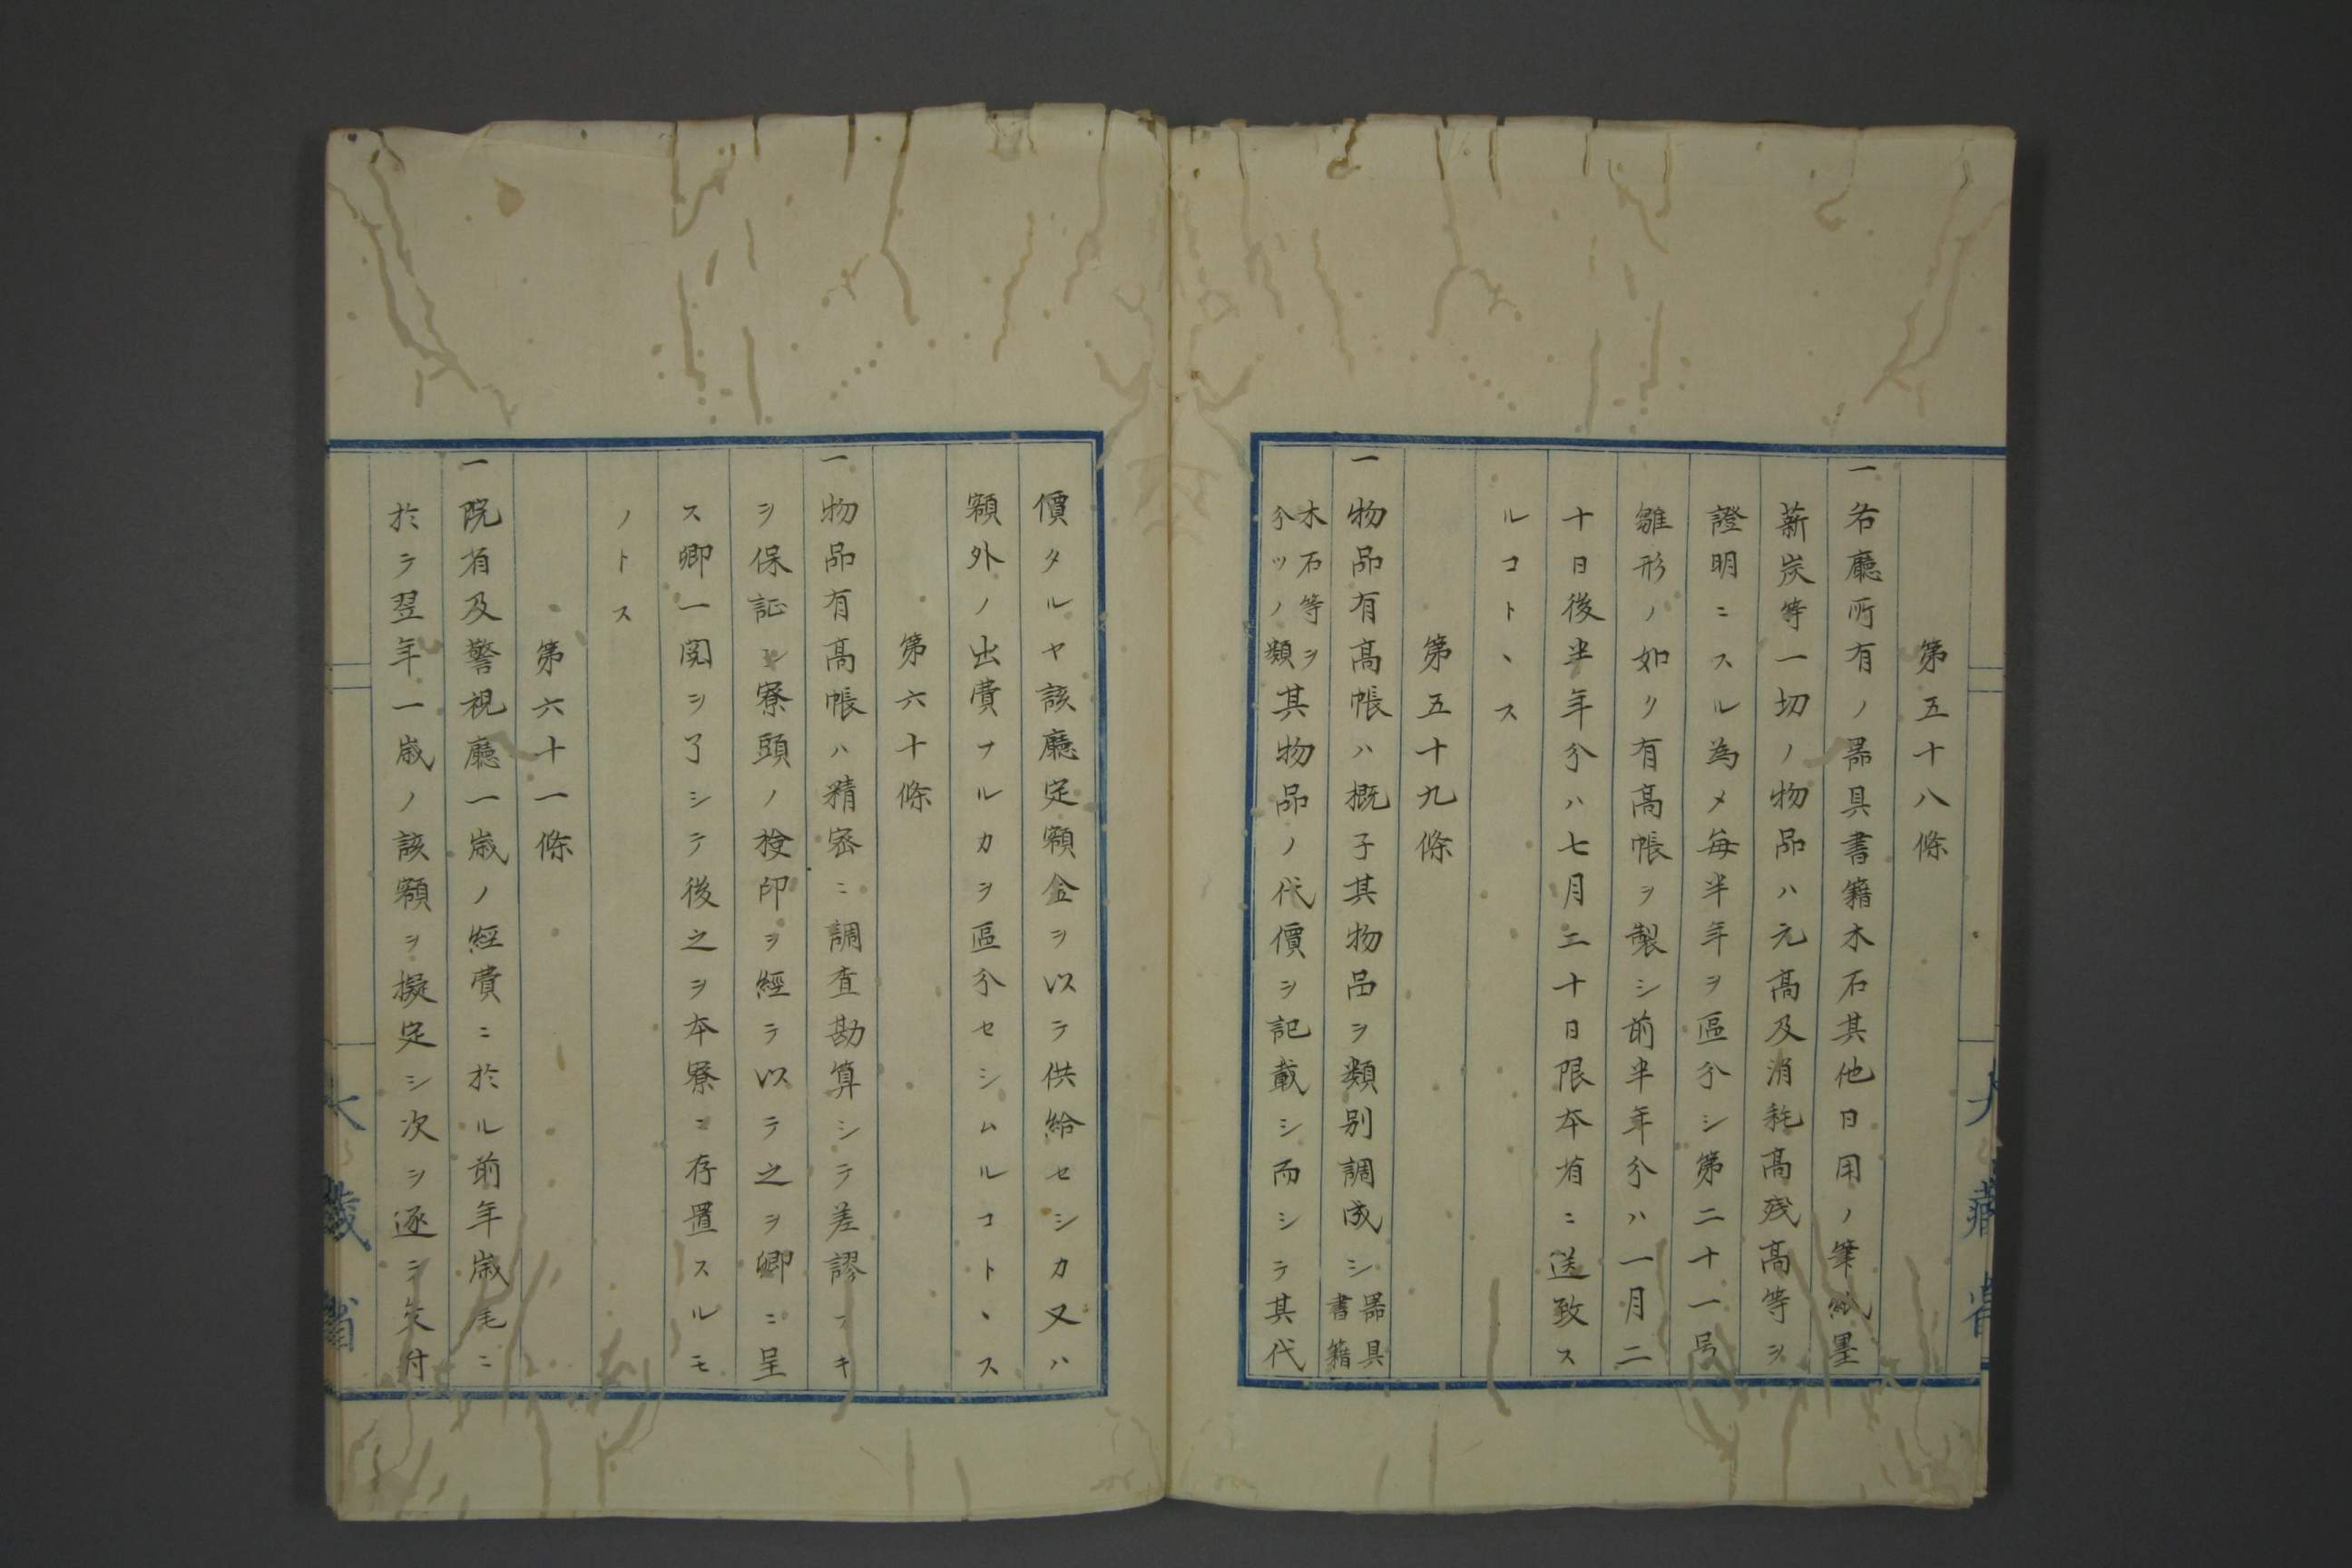 第五十八條
一各廳所有ノ噐具書籍木石其他日用ノ筆紙墨
薪炭等一切ノ物品ハ元高及消耗高残高等ヲ
證明ニスル為メ毎半年ヲ區分シ第二十一号
雛形ノ如ク有高帳ヲ製シ前半年分ハ一月二
十日後半年分ハ七月二十日限本省ニ送致ス
ルコトヽス
第五十九條
一物品有高帳ハ概子其物品ヲ類別調成シ噐具書籍
木石等ヲ分ツノ類其物品ノ代價ヲ記載シ而シテ其代
價タルヤ該廳定額金ヲ以テ供給セシカ又ハ
額外ノ出費ナルカヲ區分セシムルコトヽス
第六十條
一物品有高帳ハ精密ニ調査勘算シテ差謬ナキ
ヲ保証シ寮頭ノ撿印ヲ經テ以テ之ヲ卿ニ呈
ス卿一閲ヲ了シテ後之ヲ本寮ニ存置スルモ
ノトス
第六十一條
一院省及警視廳一歳ノ經費ニ於ル前年歳毛ニ
於テ翌年一歳ノ該額ヲ擬定シ次ヲ逐テ交付
大藏省
大藏省